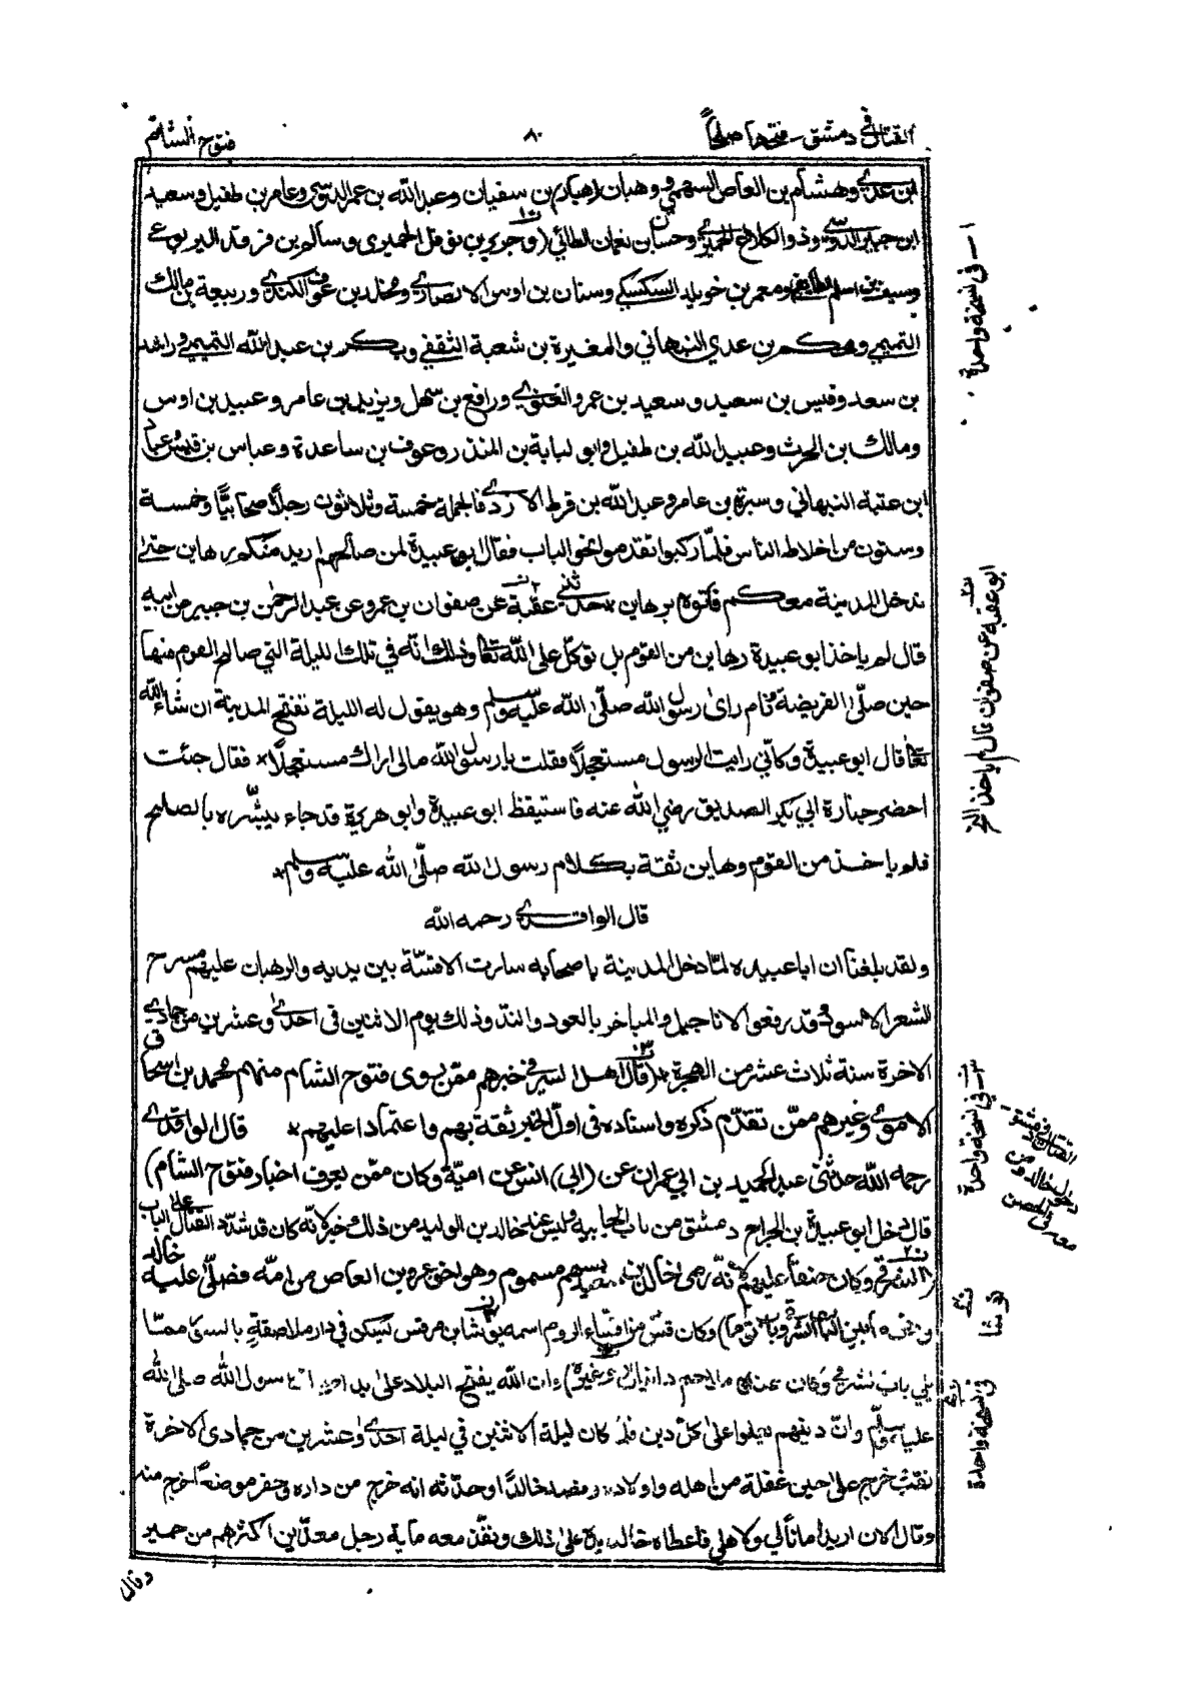 القتال في دمشق ـ فتحها صلحاً
٨٠
فتوح الشام
ابن عدي وهشام بن العاص السهمي وهبان (هبار) بن سفيان وعبد الله بن عمر الدوسي وعامر بن طفيل وسعيد
ابن جبير الدوسي وذو الكلاع الحميري وحسان بن نعمان الطائي (وجرير بن نوفل الحميري وسالم بن فرقد اليربوعي
وسيف بن اسلم الطائفي ومعمر بن خويلد السكسكي وسنان بن اوس الانصاري ومخلد بن عوف الكندي وربيعة بن مالك
التميمي وحكم بن عدي النبهاني والمغيرة بن شعبة الثقفي وبكر بن عبد الله التميمي وراشد
بن سعد وقيس بن سعيد وسعيد بن عمرو الغنوي ورافع بن سهل ويزيد بن عامر وعبيد بن اوس
ومالك بن الحرث وعبيد الله بن طفيل وابو لبابة بن المنذر وعوف بن ساعدة وعباس بن قيس وعباد
ابن عتبة النبهاني وسبرة بن عامر وعبد الله بن قرط الازدي فالجملة خمسة وثلاثون رجلاً صحابيًّا وخمسة
وستون من اخلاط الناس فلمّا ركبوا تقدموا نحو الباب فقال ابو عبيدة لمن صالحهم اريد منكم رهاين حتى
ندخل المدينة معكم فأتوه برهاين * حدثني عقبة عن صفوان بن عمرو عن عبد الرحمٰن بن جبير عن ابيه
قال لم ياخذ ابو عبيدة رهاين من القوم بل توكّل على الله تعالى وذلك انّه في تلك الليلة التي صالح القوم منها
حين صلّى الفريضة ونام راى رسول الله صلّى الله عليه وسلم وهو يقول له الليلة نفتح المدينة ان شاء الله
تعالى قال ابو عبيدة وكانّي رايت الرسول مستعجلاً فقلت يا رسول الله مالي اراك مستعجلاً * فقال جئت
احضر جنازة ابي بكر الصديق رضي الله عنه فاستيقظ ابو عبيدة وابو هريرة قد جاء يبشّره بالصلح
فلم ياخذ من القوم رهاين ثقة بكلام رسول الله صلّى الله عليه وسلم *
قال الواقدي رحمه الله
ولقد بلغنا ان ابا عبيدة لمّا دخل المدينة باصحابه سارت الاقسّة بين يديه والرهبان عليهم مسرح
الشعر الاسود وقد رفعوا الاناجيل والمباخر بالعود والند وذلك يوم الاثنين في احدى وعشرين من جمادي
الاخرة سنة ثلاث عشر من الهجرة * (قال اهل السير في خبرهم ممّن يروي فتوح الشام منهم محمد بن اسحاق
الاموي وغيرهم ممّن تقدّم ذكره واسناده في اول الخبر ثقة بهم واعتمادا عليهم * قال الواقدي
رحمه الله حدثني عبد الحميد بن ابي عمران عن (ابي) انس عن امية وكان ممّن يعرف اخبار فتوح الشام)
قال دخل ابو عبيدة بن الجراح دمشق من باب الجابية وليس عند خالد بن الوليد من ذلك خبر لانّه كان قد شدّد القتال على الباب
الشرقي وكان حنقاً عليهم لانّه رمي بسهم مسموم وهو اخو عمرو بن العاص من امّه فصلّى عليه خالد
باب الشرقي وباب توما) وكان قسّ من اقسّاء الروم اسمه يوشا بن مرقس يسكن في دار ملاصقةٍ بالسور ممّا
يلي باب شرقي وكان عنده دانيال ) ان الله يفتح البلاد على يد رسول الله صلى الله
عليه وسلّم وانّ دينهم يعلوا على كلّ دين فلمّا كان ليلة الاثنين في ليلة احدى وعشرين من جمادى الاخرة
نقب خرج على حين غفلة من اهله واولاده وقصد خالدًا وحدّثه انه خرج من داره وحفر موضعاً خرج منه
وقال الان اريد اماناً لي ولاهلي فاعطاه خالد يده على ذلك ونفّذ معه ماية رجل معدّين اكثرهم من حمير
وقال
١ ـ في نسخة واحدة
ابو عقبة عن صفوان قال لم ياخذ الخ
٣ ـ في نسخة واحدة
في نسخة واحدة